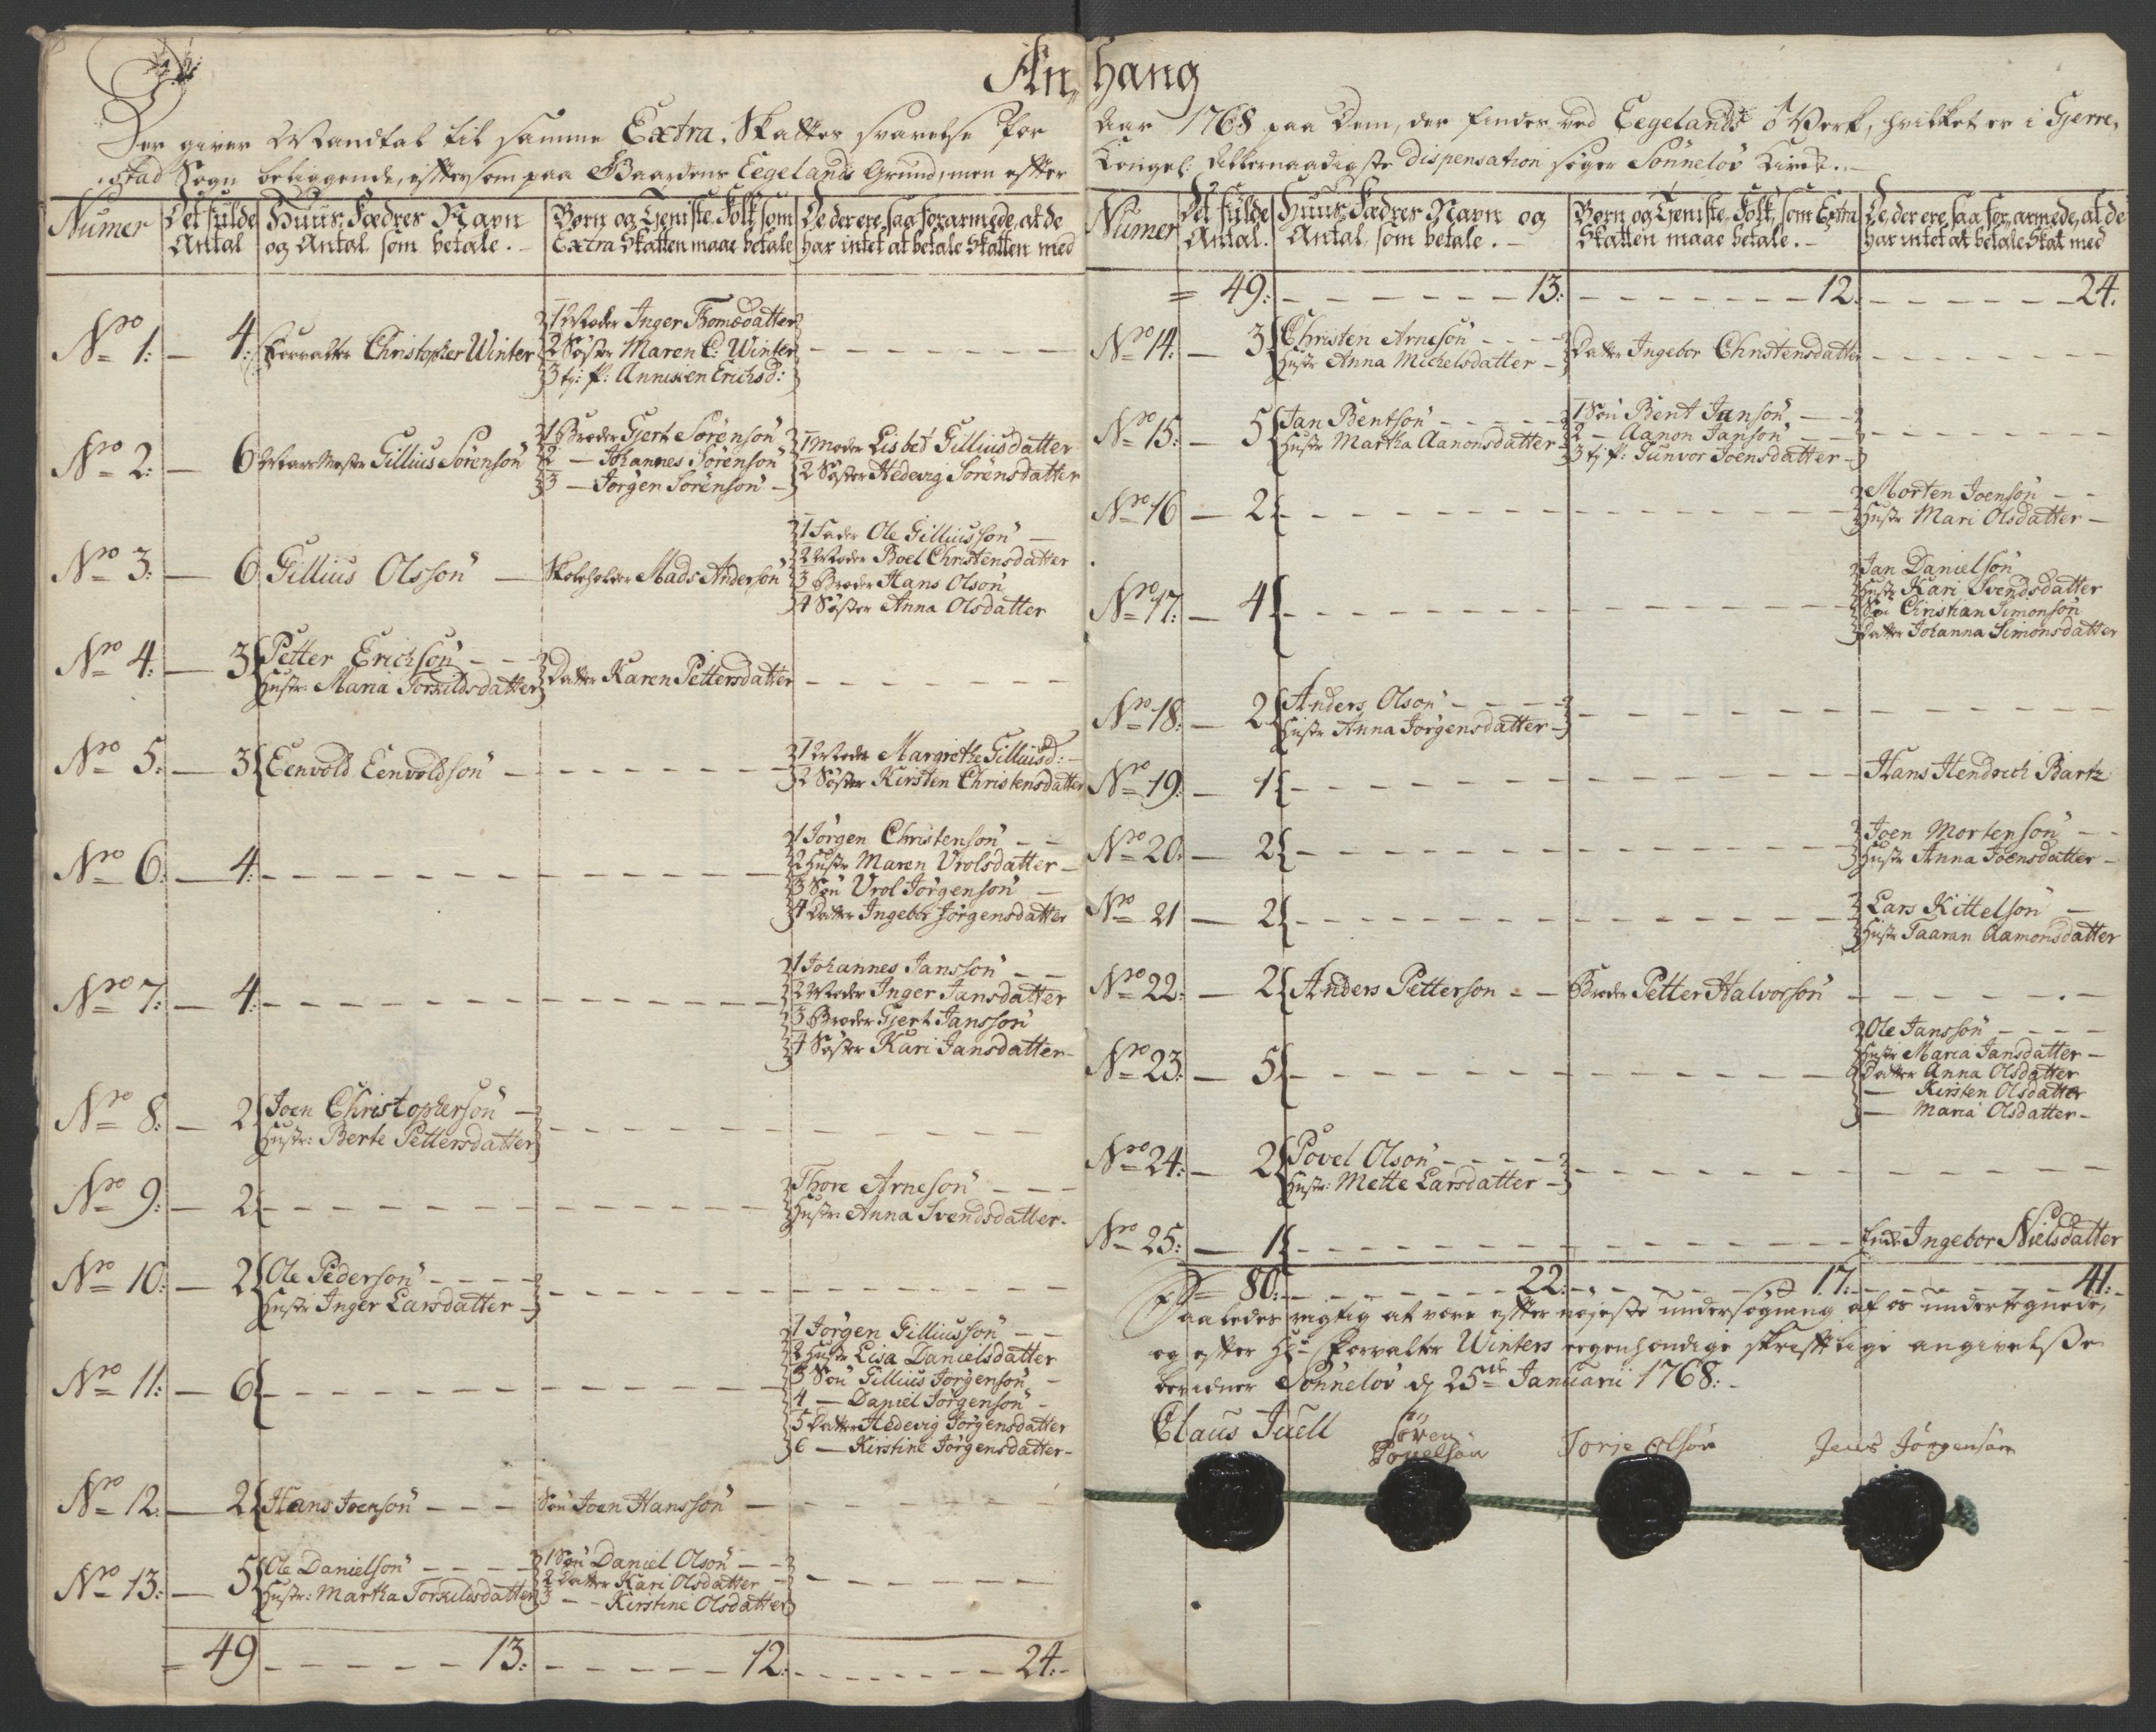 An,, hang
Der giver Mandtal til samme Extra, Skattes svarelse for
Aar 1768 paa Dem, der findes ved Eegelands Verk, hvilket er i Gjerre,
,,stad Sogn beliggende, eftersom paa Gaardens Eegelands Grund, men efter
Kongel: Allernaadigste Dispensation søger Sønneløv Kirke.
Numer
Det fulde Antal
Huus, Fædres Navn og Antal som betale.
Børn og Tjeniste, Folk, som Extra Skatten maae betale
De der ere saa forarmede, at de har intet at betale Skatten med
No 1: — 4: Forvalter Christopher Winter
1 Moder Inger Thomædatter
2 Søster Maren C: Winter
3 tj: p: Annichen Erichsd:
No 2: — 6 Gillius Sørensøn
1 Broder Gjert Sørensøn
2 — Johannes Sørensøn
3 — Jørgen Sørensøn
1 Moder Lisbet Gilliusdatter
2 Søster Hedevig Sørensdatter
No 3: — 6 Gillius Olssøn
Skoleholder Mads Andersøn
1 Fader Ole Gilliussøn
2 Moder Boel Christensdatter
3 Broder Hans Olsøn
4 Søster Anna Olsdatter
No 4: — 3 Petter Erichsøn
Hustr: Maria Torkildsdatter
Datter Karen Pettersdatter
No 5: — 3 Eenvold Eenvoldsøn
1 Moder Margrethe Gilliusd:
2 Søster Kirsten Christensdatter
No 6: — 4:
1 Jørgen Christensøn
2 Hustr Maren Vrolsdatter
3 Søn Vrol Jørgensøn
4 Datter Ingebor Jørgensdatter
No 7: — 4:
1 Johannes Janssøn
2 Moder Inger Jansdatter
3 Broder Gjert Janssøn
4 Søster Kari Jansdatter
No 8: — 2 Joen Christophersøn
Hustr: Berte Pettersdatter
No 9: — 2
Thore Arnesøn
Hustr: Anna Svendsdatter
No 10: — 2 Ole Pedersøn
Hustr Inger Larsdatter
No 11: — 6
1 Jørgen Gilliussøn
2 Hustr Lisa Danielsdatter
3 Søn Gillius Jørgensøn
4 — Daniel Jørgensøn
5 Datter Hedevig Jørgensdatter
6 — Kirstine Jørgensdatter
No 12: — 2 Hans Joensøn
Søn Joen Hanssøn
No 13: — 5 Ole Danielsøn
Hustr: Martha Torkildsdatter
1 Søn Daniel Olsøn
2 Datter Kari Olsdatter
3 — Kirstine Olsdatter
= 49 13: 12: 24:
Numer
Det fulde Antal.
Huus, Fædres Navn og Antal som betale.
Børn og Tjeniste, Folk, som Extra Skatten maae betale.
De, der ere saa for,armede, at de har intet at betale Skat med
= 49: 13: 12: 24.
No 14: — 3 Christen Arnesøn
Hustr Anna Michelsdatter
Datter Ingebor Christensdatter
No 15: — 5 Jan Bentsøn
Hustr Martha Aanonsdatter
1 Søn Bent Jansøn
2 — Aanon Jansøn
3 tj p: Gunvor Joensdatter
No 16 — 2
Morten Joensøn
Hustr Mari Olsdatter
No 17: — 4
Jan Danielsøn
Hustr Kari Svendsdatter
Søn Christian Simonsøn
Datter Johanna Simonsdatter
No 18: — 2 Anders Olsøn
Hustr Anna Jørgensdatter
No 19: — 1
Hans Hendrich Bartz
No 20: — 2
Joen Mortensøn
Hustr Anna Joensdatter
No 21 — 2
Lars Kittelsøn
Hustr Taaran Aamonsdatter
No 22: — 2 Anders Pettersøn
Broder Petter Halvorsøn
No 23: — 5
Ole Janssøn
Hustr Maria Jansdatter
Datter Anna Olsdatter
— Kirsten Olsdatter
— Maria Olsdatter
No 24: — 2 Povel Olsøn
Hustr: Mette Larsdatter
No 25: — 1
Enke Ingebor Nielsdatter
= 80: 22: 17: 41:
Saaledes rigtig at være efter nøjeste undersøgning af os undertegnede,
og efter Hr Forvalter Winters eegenhændige skriftlige angivelse
bevidner Sønneløv d 25de Januarii 1768:
Claus Juell
Søren Povelsøn
Torje Olsøn
Jens Jørgensøn